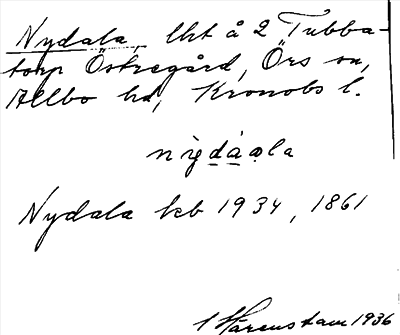 Nydala, lht å 2 Tubba-
torp Östregård, Örs sn,
Allbo hd, Kronobs l.
Nydala kb 1934, 1861
Härenstam 1936